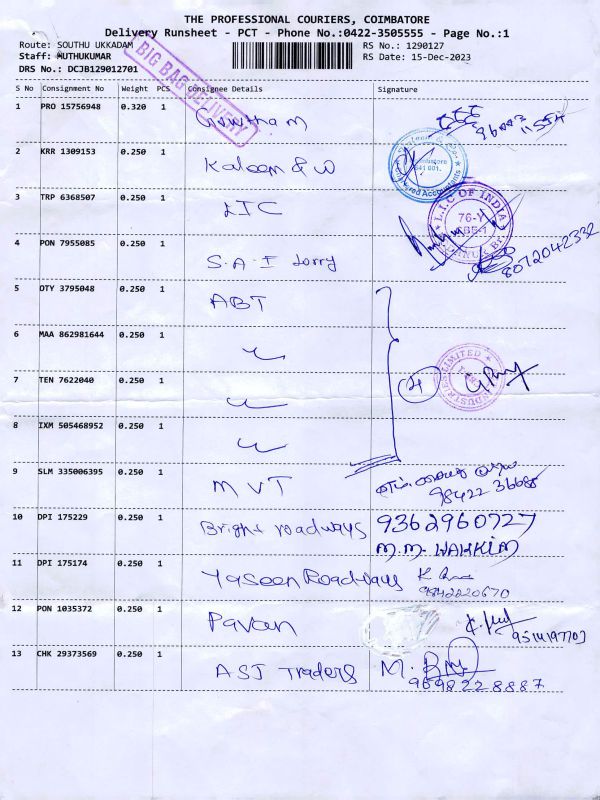 THE PROFESSIONAL COURIERS, COIMBATORE
Delivery Runsheet - PCT - Phone No.:0422-3505555 - Page No.:1
Route: SOUTHU UKKADAM RS No.: 1290127
Staff: MUTHUKUMAR RS Date: 15-Dec-2023
DRS No.: DCJB129012701
BIG BAG DELIVERY
S No Consignment No Weight PCS Consignee Details Signature
1 PRO 15756948 0.320 1 Gowtham
2 KRR 1309153 0.250 1 Kaleem & W
3 TRP 6368507 0.250 1 LIC
L.I.C OF INDIA
4 PON 7955085 0.250 1 S.A.I Lorry 8072042332
5 OTY 3795048 0.250 1 ABT
6 MAA 862981644 0.250 1 〃
7 TEN 7622040 0.250 1 〃 4
8 IXM 505468952 0.250 1 〃
9 SLM 335006395 0.250 1 MVT
98422 36685
10 DPI 175229 0.250 1 Bright roadways 9362960727
M.M. HAKKIM
11 DPI 175174 0.250 1 Yaseen Roadways
9842220670
12 PON 1035372 0.250 1 Pavan
13 CHK 29373569 0.250 1 ASJ Traders
9698228887